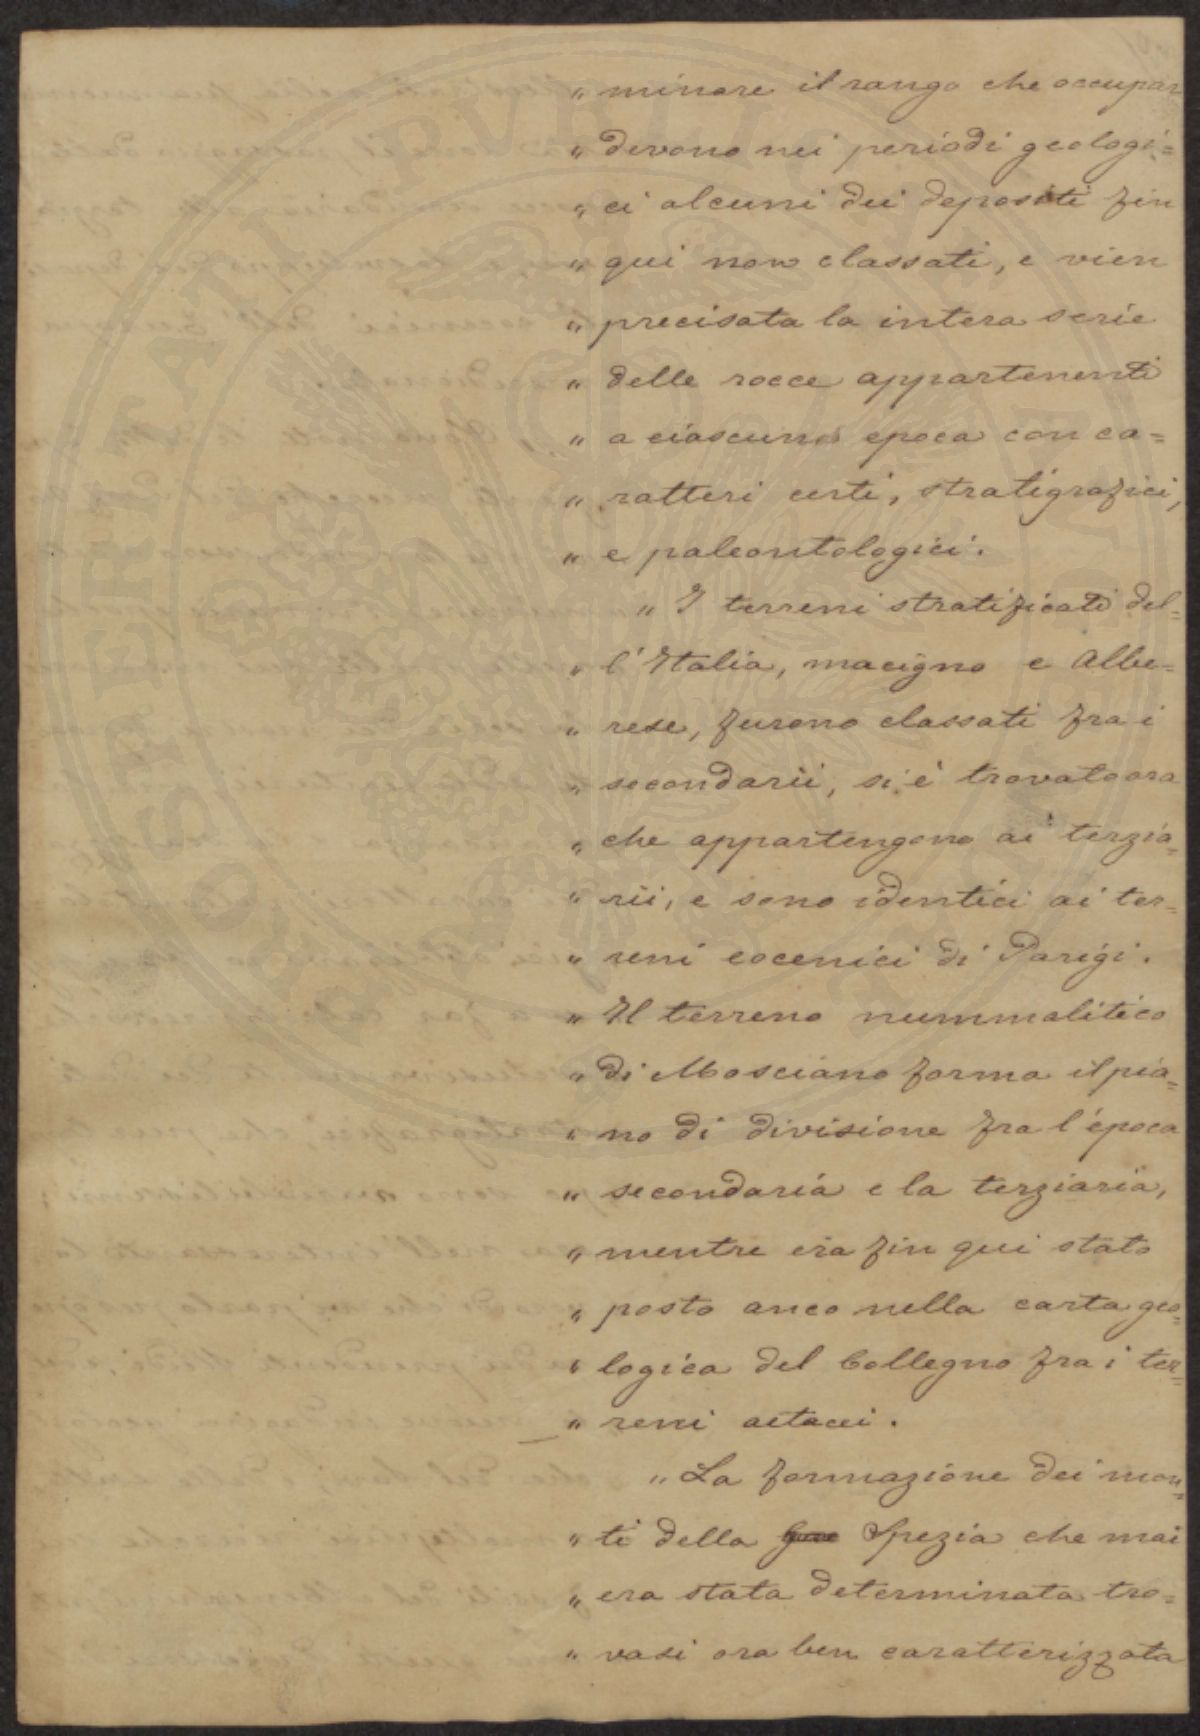 „ minare il rango che occupar
„ devono nei periodi geologi=
„ ci alcuni dei depositi fin
„ qui non classati, e vien
„ precisata la intera serie
„ delle rocce appartenenti
„ a ciascuna epoca con ca=
„ ratteri certi, stratigrafici,
„ e paleontologici.
„ I terreni stratificati del=
„ l'Italia, macigno e Albe=
„ rese, furono classati fra i
„ secondarii, si è trovato ora
„ che appartengono ai terzia=
„ rii, e sono identici ai ter=
„ reni eocenici di Parigi.
„ Il terreno nummalitico
„ di Mosciano forma il pia=
„ no di divisione fra l'epoca
„ secondaria e la terziaria,
„ mentre era fin qui stato
„ posto anco nella carta geo=
„ logica del Collegno fra i ter=
„ reni cetacei.
„ La formazione dei mon=
„ ti della Spezia che mai
„ era stata determinata tro=
„ vasi ora ben caratterizzata
POSTERITATI PVBLICAE